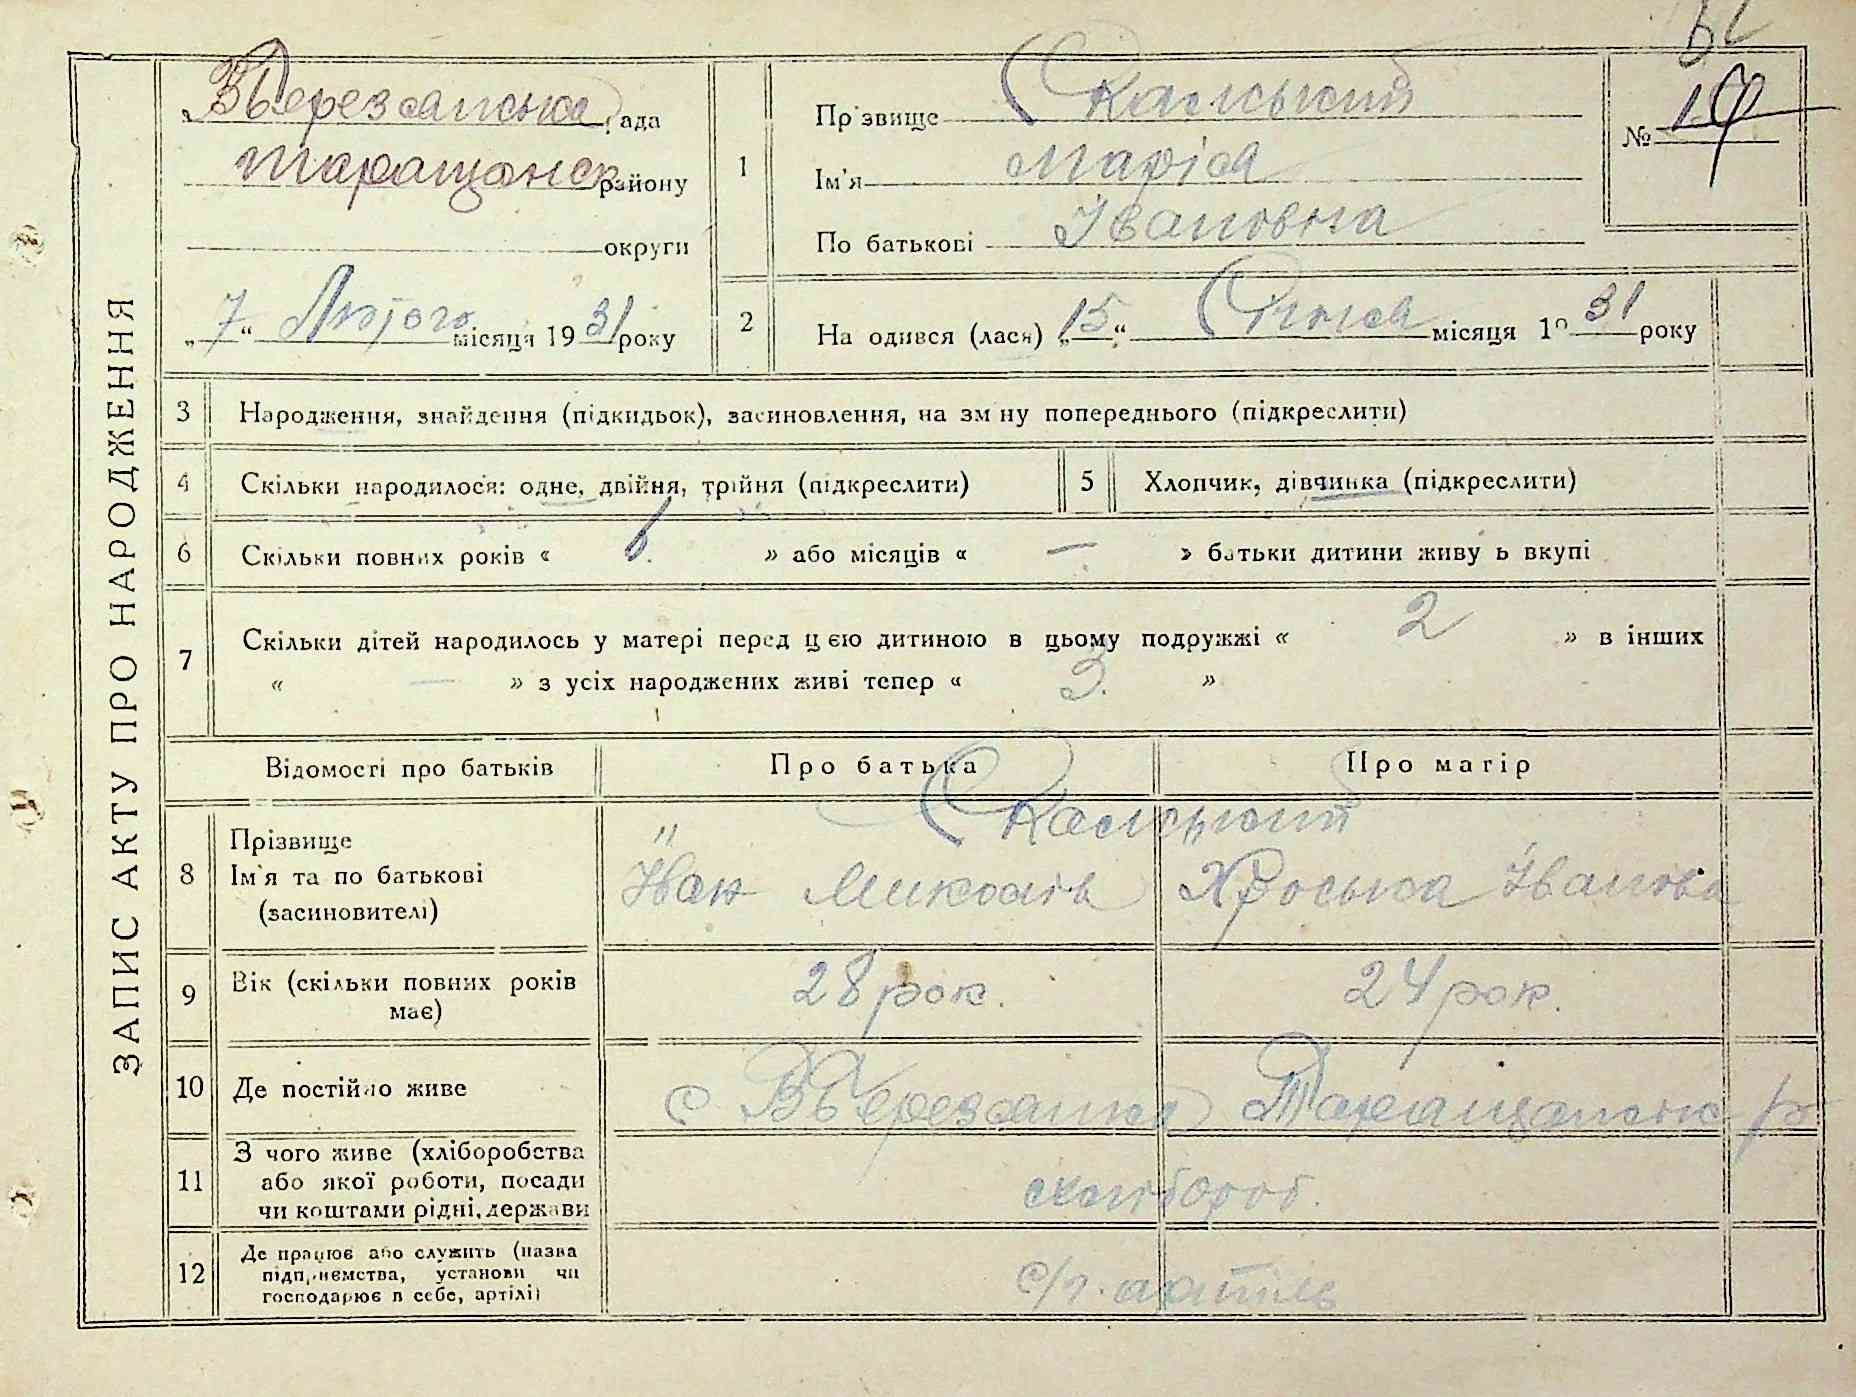 ЗАПИС АКТУ ПРО НАРОДЖЕННЯ
В Березанська рада
Таращанськ району
округи
„7“ Лютого місяця 1931 року
№ 14
1 Прізвище Скальський
Ім'я Марія
По батькові Івановна
2 На одився (лася) „15“ Січня місяця 19 31 року
3 Народження, знайдення (підкидьок), засиновлення, на зм ну попереднього (підкреслити)
4 Скільки народилося: одне, двійня, трійня (підкреслити)
5 Хлопчик, дівчинка (підкреслити)
6 Скільки повних років « 6. » або місяців « — » батьки дитини живу ь вкупі
7 Скільки дітей народилось у матері перед цією дитиною в цьому подружжі « 2 » в інших
« — » з усіх народжених живі тепер « 3. »
Відомості про батьків Про батька Про матір
8 Прізвище
Ім'я та по батькові
(засиновителі)
Скальський
Іван Миколів Хроська Іванова
9 Вік (скільки повних років
має)
28 рок. 24 рок.
10 Де постійно живе с В Березанка Таращанськ р
11 З чого живе (хліборобства
або якої роботи, посади
чи коштами рідні, держави
хлібороб.
12 Де працює або служить (назва
підприємства, установи чи
господарює в себе, артілі)
с/г. артіль